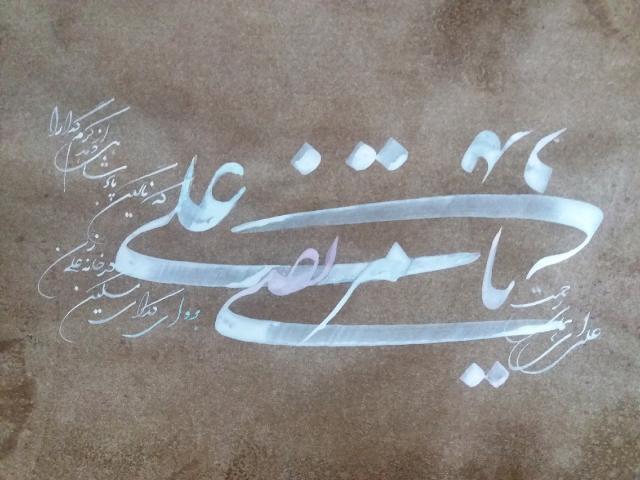 یا مرتضی علی
علی ای همای رحمت
برو ای گدای مسکین
در خانه علی زن
که نگین پادشاهی
دهد از کرم گدا را